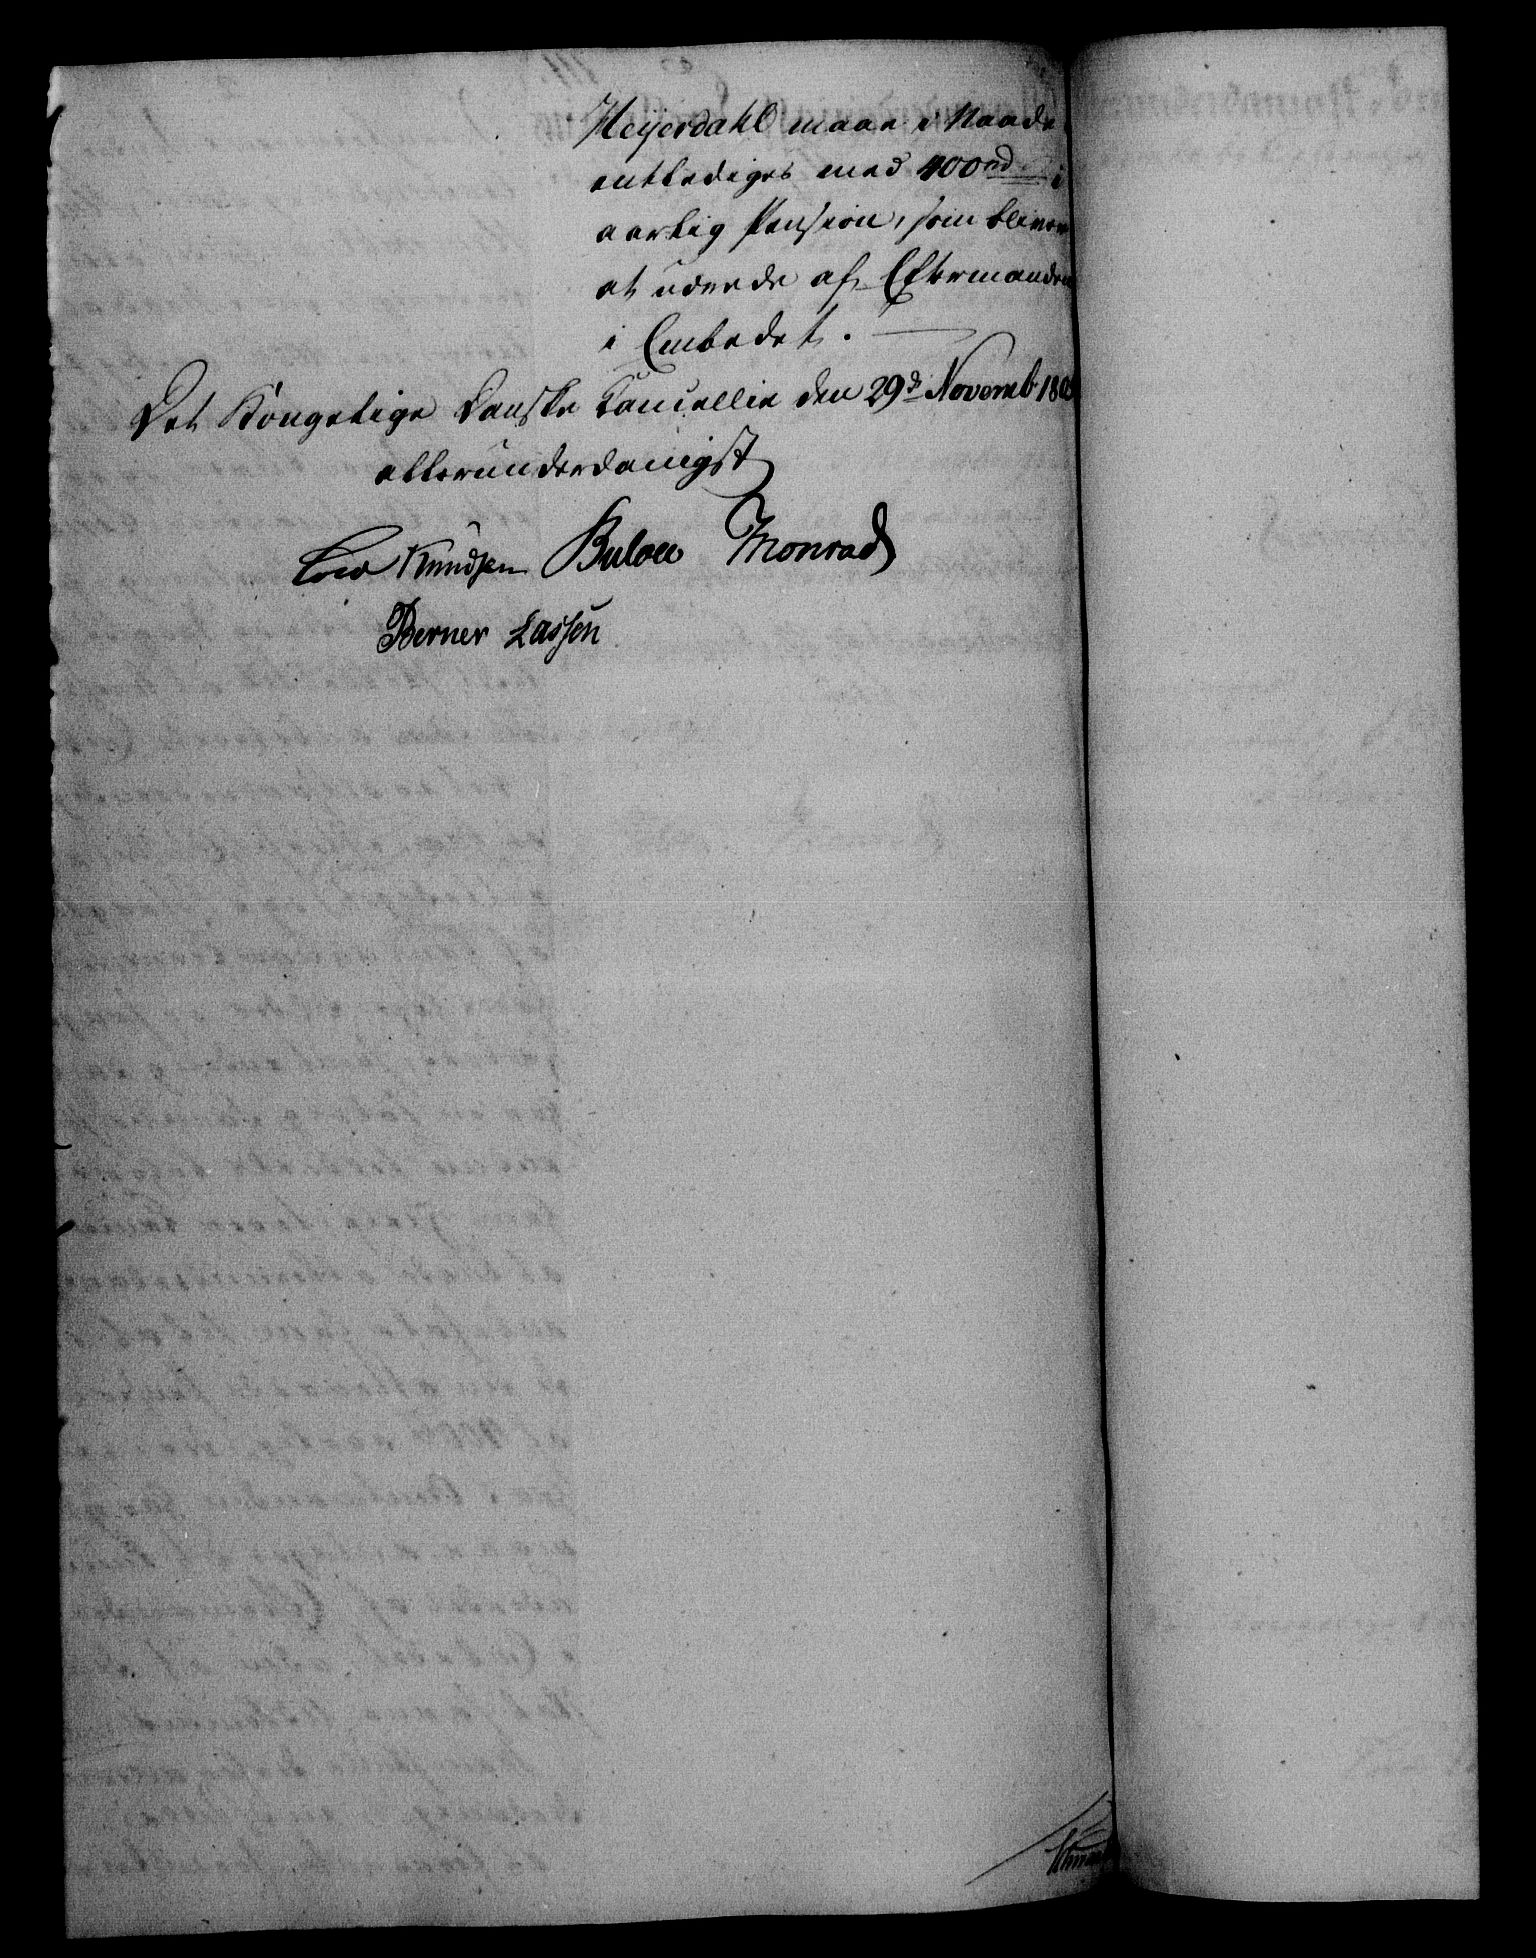 Heijerdahl maae i Naade
entlediges med 400 rd i
aarlig Pension, som bliver
at udrede af Eftermanden
i Embedet.
Det Kongelige Danske Cancellie den 29d Novemb. 180
allerunderdanigst
Knudsen Bulow Monrad
Berner Lassen